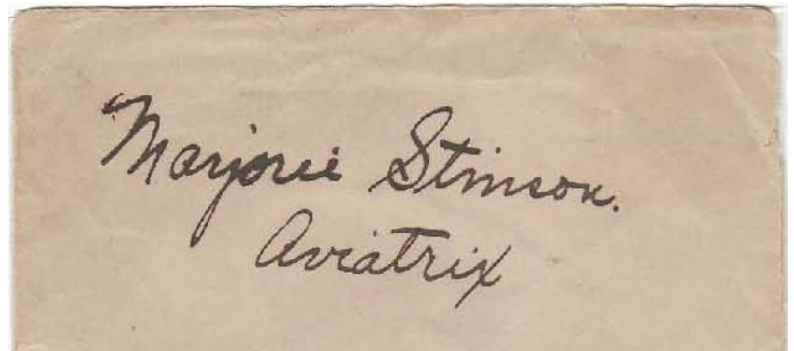 Marjorie Stinson.
Aviatrix